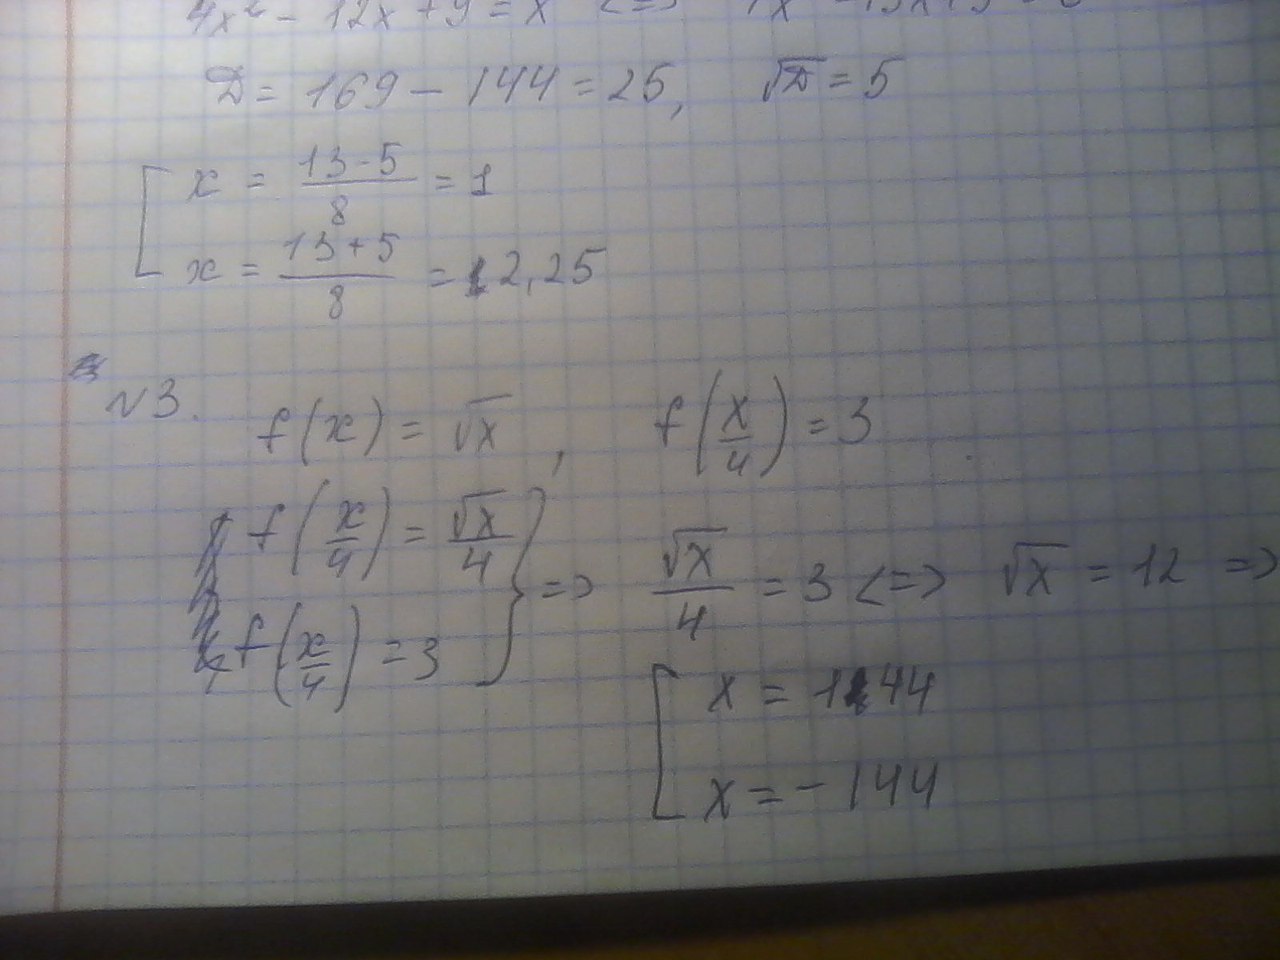 4x² - 12x + 9 = x <=>
D = 169 - 144 = 25, √D = 5
x = (13-5)/8 = 1
x = (13+5)/8 = 2,25
N3. f(x) = √x , f(x/4) = 3
f(x/4) = √x/4
=> √x/4 = 3 <=> √x = 12 =>
f(x/4) = 3
x = 144
x = -144